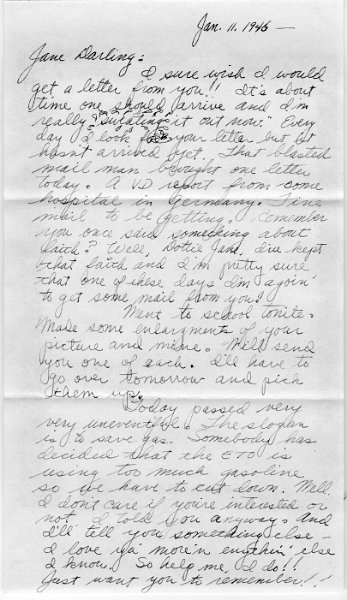 Jan. 11. 1946 —
Jane Darling:
I sure wish I would
get a letter from you!! It's about
time one should arrive and I'm
really "sweating" it out now." Every
day I look for your letter but it
hasn't arrived yet. That blasted
mail man brought one letter
today. A V.D report from some
hospital in Germany. Fine
mail to be getting. Remember
you once said something about
faith? Well, Dottie Jane, I've kept
that faith and I'm pretty sure
that one of these days I'm agoin'
to get some mail from you?
Went to school tonite.
Made some enlargments of your
picture and mine. Will send
you one of each. I'll have to
go over tomorrow and pick
them up.
Today passed very
very uneventful. The slogan
is to save gas. Somebody has
decided that the ETO is
using too much gasoline
so we have to cut down. Well
I don't care if you're interested or
not I told you anyway. And
I'll tell you something else —
I love ya' more'n enythin' else
I know. So help me I do!!
Just want you to remember!!